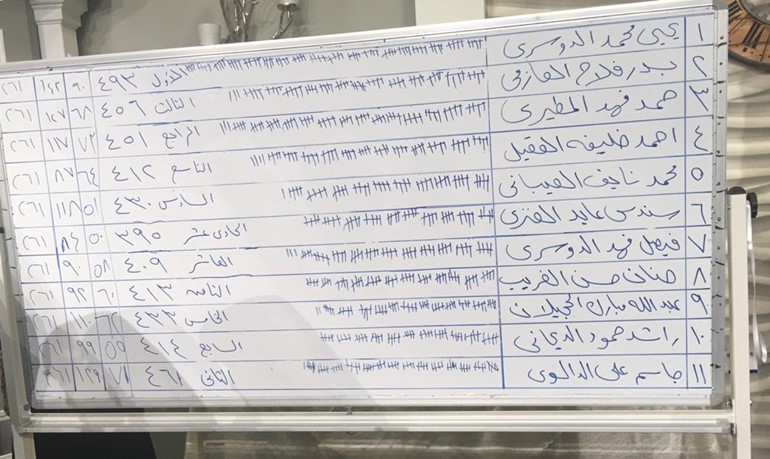 ١ يحيى محمد الدوسري الأول ٤٩٣ ٩٠ ١٤٢ ٢٦١
٢ بدر فلاح العازمي الثالث ٤٥٦ ٦٨ ١٢٧ ٢٦١
٣ حمد فهد المطيري الرابع ٤٥١ ٧٣ ١١٧ ٢٦١
٤ احمد خليفه العقيل التاسع ٤١٢ ٦٤ ٨٧ ٢٦١
٥ محمد نايف العتيباني السادس ٤٣٠ ٥١ ١١٨ ٢٦١
٦ سندس عايد العنزي الحادي عشر ٣٩٥ ٥٠ ٨٤ ٢٦١
٧ فيصل فهد الدوسري العاشر ٤٠٩ ٥٨ ٩٠ ٢٦١
٨ حنان حسن الغريب الثامن ٤١٣ ٦٠ ٩٢ ٢٦١
٩ عبدالله مبارك العجيلان الخامس ٤٣٣ ٢٦١
١٠ راشد حمود الديحاني السابع ٤١٤ ٥٥ ٩٩ ٢٦١
١١ جاسم علي الدالوي الثاني ٤٦١ ٧١ ١٢٩ ٢٦١